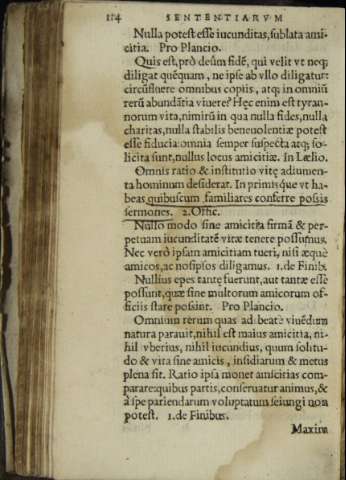 114 SENTENTIARVM
Nulla potest esse iucunditas, sublata ami-
citia. Pro Plancio.
Quis est, prò deûm fidē, qui velit vt neq;
diligat quēquam, ne ipse ab vllo diligatur:
circūfluere omnibus copiis, atq; in omniū
rerū abundātia viuere? Hęc enim est tyran-
norum vita, nimirū in qua nulla fides, nulla
charitas, nulla stabilis beneuolentiæ potest
esse fiducia: omnia semper suspecta atq; sol-
licita sunt, nullus locus amicitiæ. In Lælio.
Omnis ratio & institutio vitę adiumen-
ta hominum desiderat. In primisque vt ha-
beas quibuscum familiares conferre possis
sermones. 2. Offic.
Nullo modo sine amicitia firmā & per-
petuam iucunditatē vitæ tenere possumus.
Nec verò ipsam amicitiam tueri, nisi æquè
amicos, ac nosipsos diligamus. 1. de Finib.
Nullius opes tantę fuerunt, aut tantæ esse
possunt, quæ sine multorum amicorum of-
ficiis stare possint. Pro Plancio.
Omnium rerum quas ad beatè viuēdum
natura parauit, nihil est maius amicitia, ni-
hil vberius, nihil iucundius, quum solitu-
do & vita sine amicis, insidiarum & metus
plena sit. Ratio ipsa monet amicitias com-
parare: quibus partis, conseruatur animus, &
à spe pariendarum voluptatum seiungi non
potest. 1. de Finibus.
Maxima